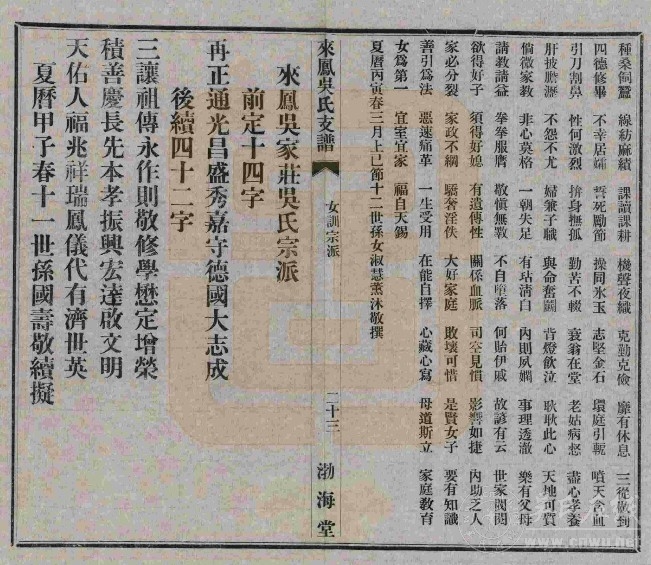 種桑飼蠶 線紡麻績 課讀課耕 機聲夜織 克勤克儉 靡有休息 三從做到
四德修畢 不幸居孀 誓死勵節 操同氷玉 志堅金石 環庭引輀 噴天含血
引刀割鼻 性何激烈 拚身撫孤 勤苦不輟 衰翁在堂 老姑病憊 盡心孝養
肝披膽瀝 不怨不尤 婦兼子職 與命奮鬭 背燈飲泣 耿耿此心 天地可質
倘微家教 非心莫格 一朝失足 有玷淸白 內則夙嫻 事理透澈 樂有父母
請教請益 拳拳服膺 敬愼無斁 不自墮落 何貽伊戚 故諺有云 世家閥閱
欲得好子 須得好媳 有遺傳性 關係血脈 司空見慣 影響如捷 內助之人
家必分裂 家政不綱 驕奢淫佚 大好家庭 敗壞可惜 是賢女子 要有知識
善引爲法 惡速痛革 一生受用 在能自擇 心藏心寫 母道斯立 家庭敎育
女爲第一 宜室宜家 福自天錫
夏曆丙寅春三月上巳節十二世孫女淑慧薰沐敬撰
來鳳吳氏支譜 女訓宗派 二十三 渤海堂
來鳳吳家莊吳氏宗派
前定十四字
再正通光昌盛秀嘉守德國大志成
後續四十二字
三讓祖傳永作則敬修學懋定增榮
積善慶長先本孝振興宏達啟文明
天佑人福兆祥瑞鳳儀代有濟世英
夏曆甲子春十一世孫國壽敬續擬
www.cnwu.net